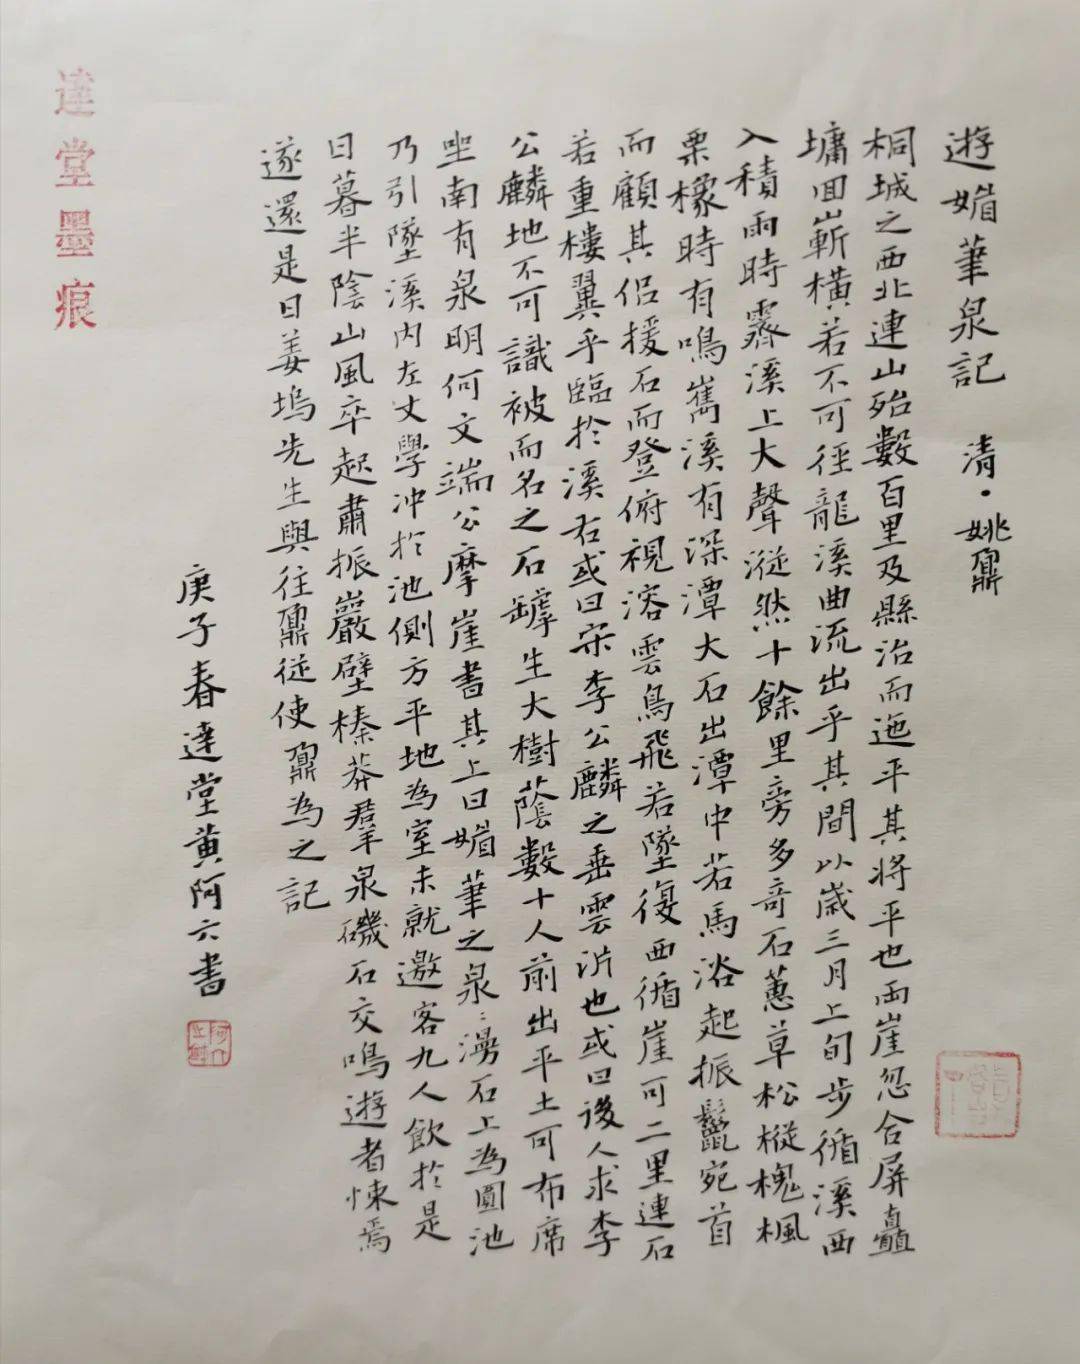 遊媚筆泉記 清·姚鼐
桐城之西北連山殆數百里及縣治而迤平其將平也兩崖忽合屏矗
墉回嶄橫若不可徑龍溪曲流出乎其間以歲三月上旬步循溪西
入積雨時霽溪上大聲漎然十餘里旁多奇石蕙草松樅槐楓
栗橡時有鳴巂溪有深潭大石出潭中若馬浴起振鬣宛首
而顧其侶援石而登俯視溶雲鳥飛若墜復西循崖可二里連石
若重樓翼乎臨於溪右或曰宋李公麟之垂雲沜也或曰後人求李
公麟地不可識被而名之石罅生大樹蔭數十人前出平土可布席
坐南有泉明何文端公摩崖書其上曰媚筆之泉〻漫石上為圓池
乃引墜溪內左丈學冲於池側方平地為室未就邀客九人飲於是
日暮半陰山風卒起肅振巖壁榛莽羣泉磯石交鳴遊者悚焉
遂還是日姜塢先生與往鼐從使鼐為之記
庚子春達堂黃阿六書
達堂墨痕